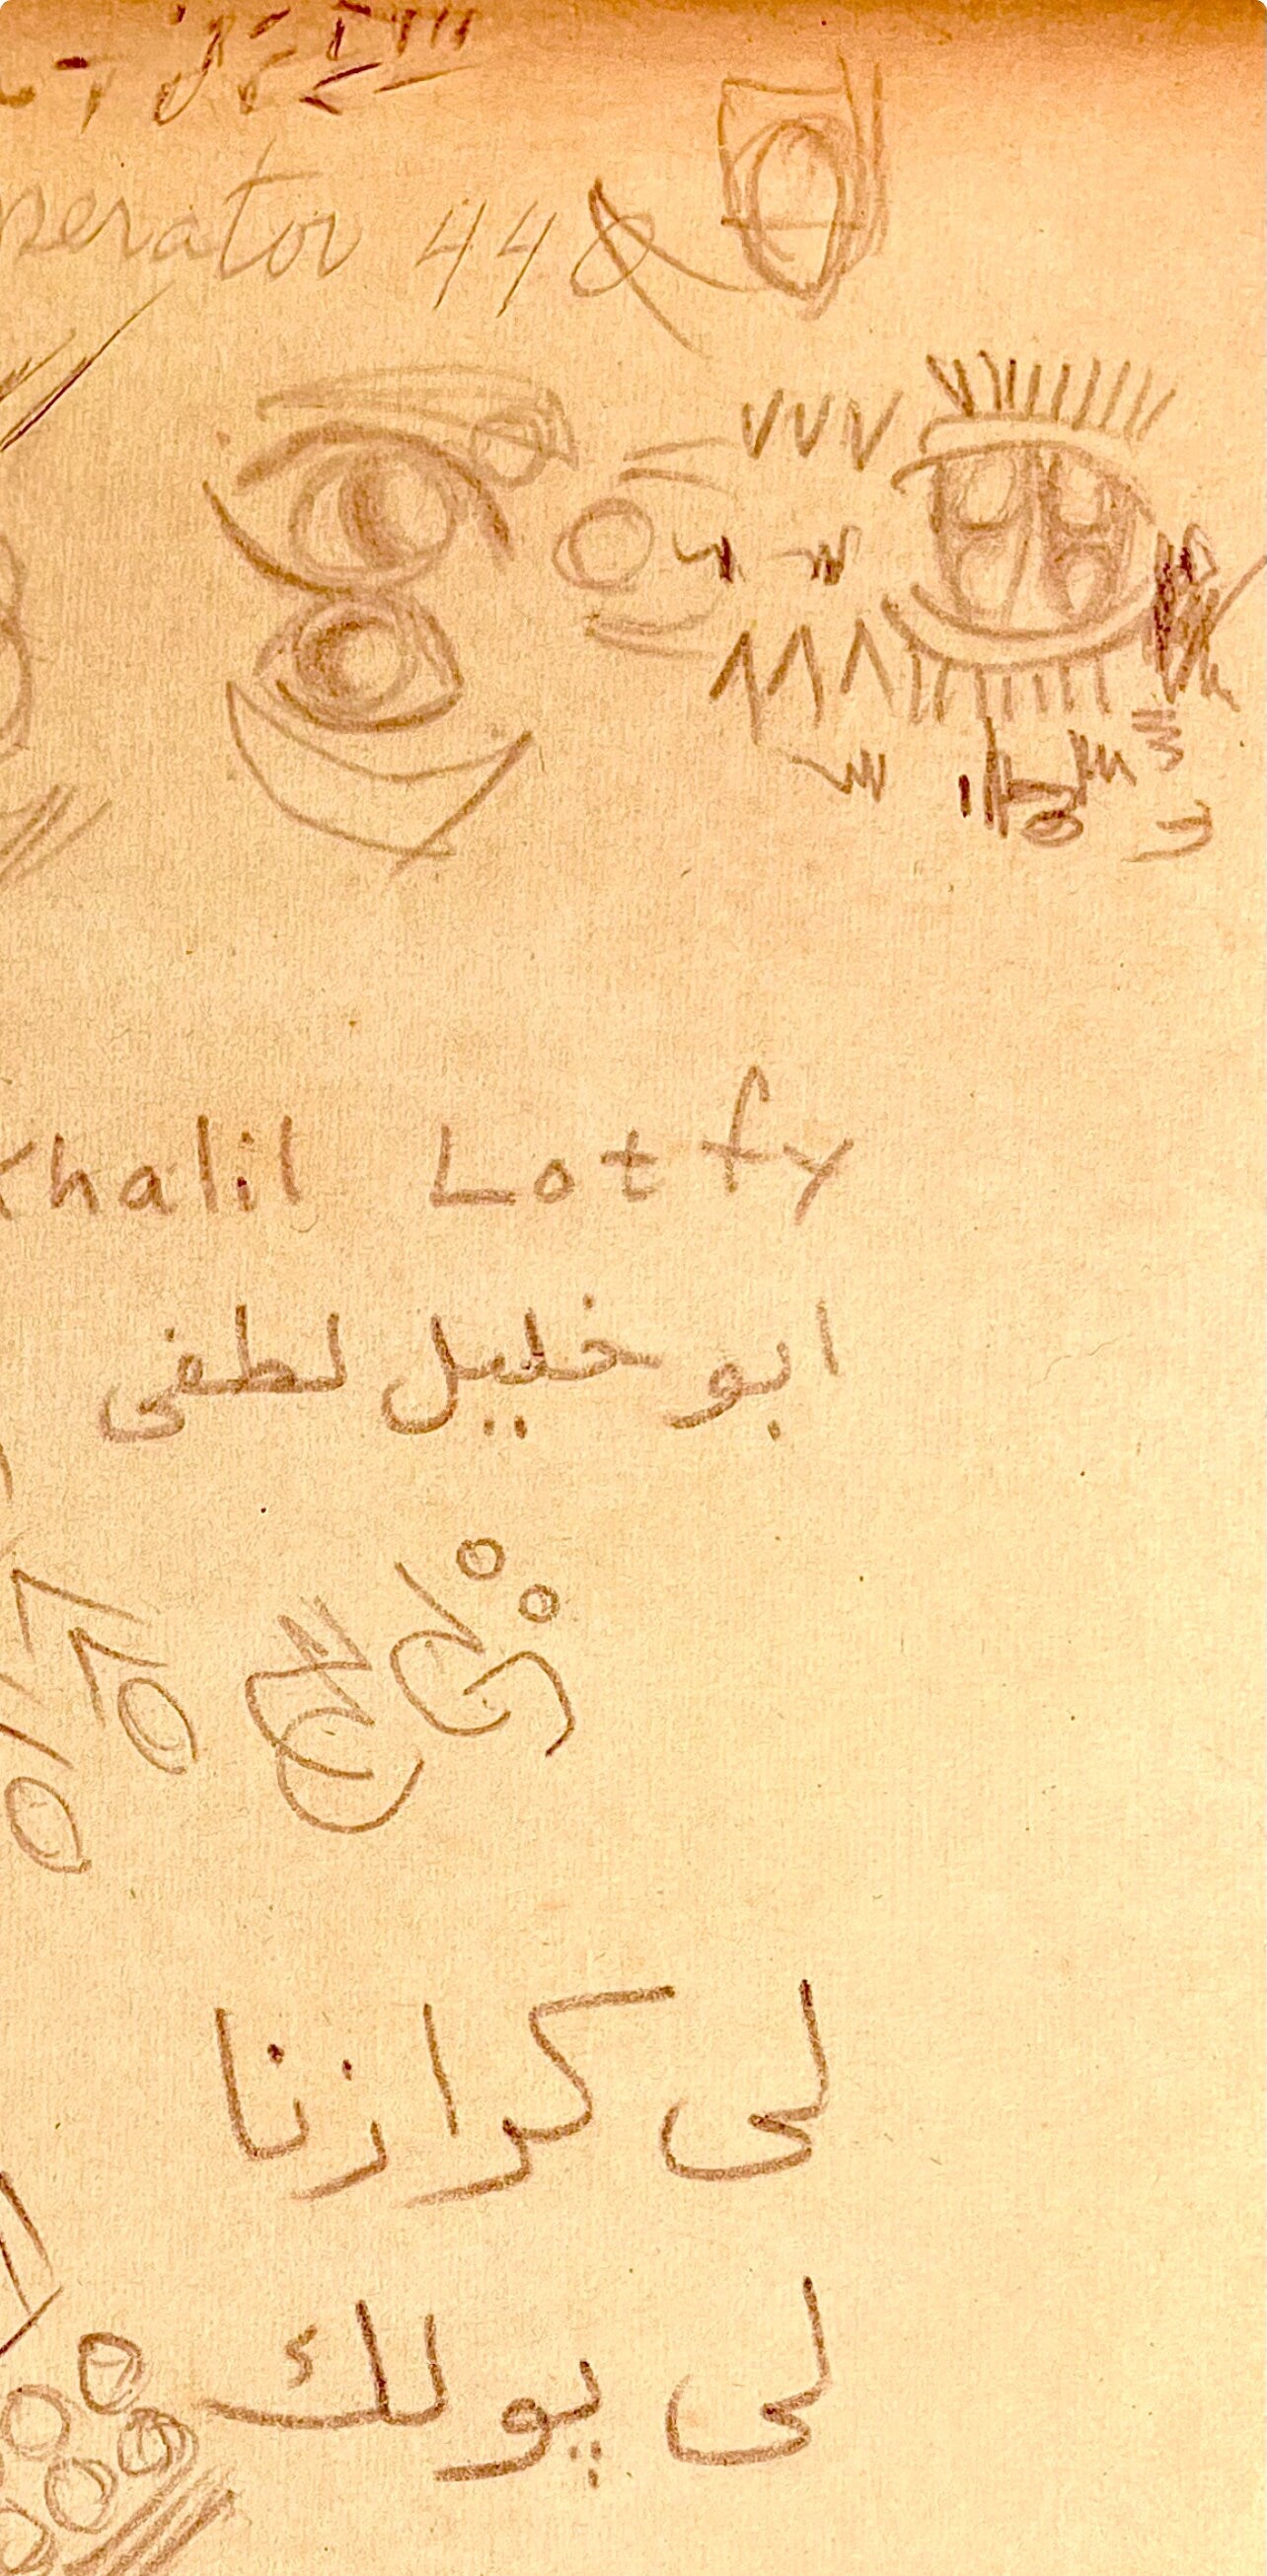 perator 44
Khalil Lotfy
ابو خليل لطفى
لى كرازنا
لى پوللك